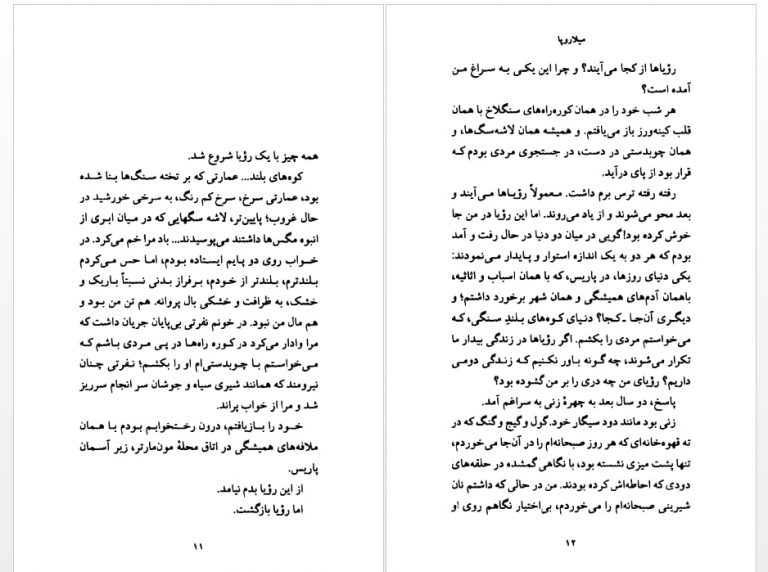 همه چیز با یک رؤیا شروع شد.
کوه‌های بلند... عمارتی که بر تخته سنگ‌ها بنا شده
بود، عمارتی سرخ، سرخ کم رنگ، به سرخی خورشید در
حال غروب؛ پایین‌تر، لاشه سگهایی که در میان ابری از
انبوه مگس‌ها داشتند می‌پوسیدند... باد مرا خم می‌کرد. در
خواب روی دو پایم ایستاده بودم، اما حس می‌کردم
بلندترم، بلندتر از خودم، برفراز بدنی نسبتاً باریک و
خشک، به ظرافت و خشکی بال پروانه. هم تن من بود و
هم مال من نبود. در خونم نفرتی بی‌پایان جریان داشت که
مرا وادار می‌کرد در کوره راه‌ها در پی مردی باشم که
می‌خواستم با چوبدستی‌ام او را بکشم؛ نفرتی چنان
نیرومند که همانند شیری سیاه و جوشان سر انجام سرریز
شد و مرا از خواب پراند.
خود را بازیافتم، درون رختخوابم بودم با همان
ملافه‌های همیشگی در اتاق محلهٔ مون‌مارتر، زیر آسمان
پاریس.
از این رؤیا بدم نیامد.
اما رؤیا بازگشت.
۱۱
میلارپا
رؤیاها از کجا می‌آیند؟ و چرا این یکی به سراغ من
آمده است؟
هر شب خود را در همان کوره‌راه‌های سنگلاخ با همان
قلب کینه‌ورز باز می‌یافتم. و همیشه همان لاشه‌سگ‌ها، و
همان چوبدستی در دست، در جستجوی مردی بودم که
قرار بود از پای درآید.
رفته رفته ترس برم داشت. معمولاً رؤیاها می‌آیند و
بعد محو می‌شوند و از یاد می‌روند. اما این رؤیا در من جا
خوش کرده بود! گویی در میان دو دنیا در حال رفت و آمد
بودم که هر دو به یک اندازه استوار و پایدار می‌نمودند:
یکی دنیای روزها، در پاریس، که با همان اسباب و اثاثیه،
باهمان آدم‌های همیشگی و همان شهر برخورد داشتم؛ و
دیگری آن‌جا ـ کجا؟ دنیای کوه‌های بلندِ سنگی، که
می‌خواستم مردی را بکشم. اگر رؤیاها در زندگی بیدار ما
تکرار می‌شوند، چه گونه باور نکنیم که زندگی دومی
داریم؟ رؤیای من چه دری را بر من گشوده بود؟
پاسخ، دو سال بعد به چهرهٔ زنی به سراغم آمد.
زنی بود مانند دود سیگار خود. گول و گیج و گنگ که در
ته قهوه‌خانه‌ای که هر روز صبحانه‌ام را در آن‌جا می‌خوردم،
تنها پشت میزی نشسته بود، با نگاهی گمشده در حلقه‌های
دودی که احاطه‌اش کرده بودند. من در حالی که داشتم نان
شیرینی صبحانه‌ام را می‌خوردم، بی‌اختیار نگاهم روی او
۱۲